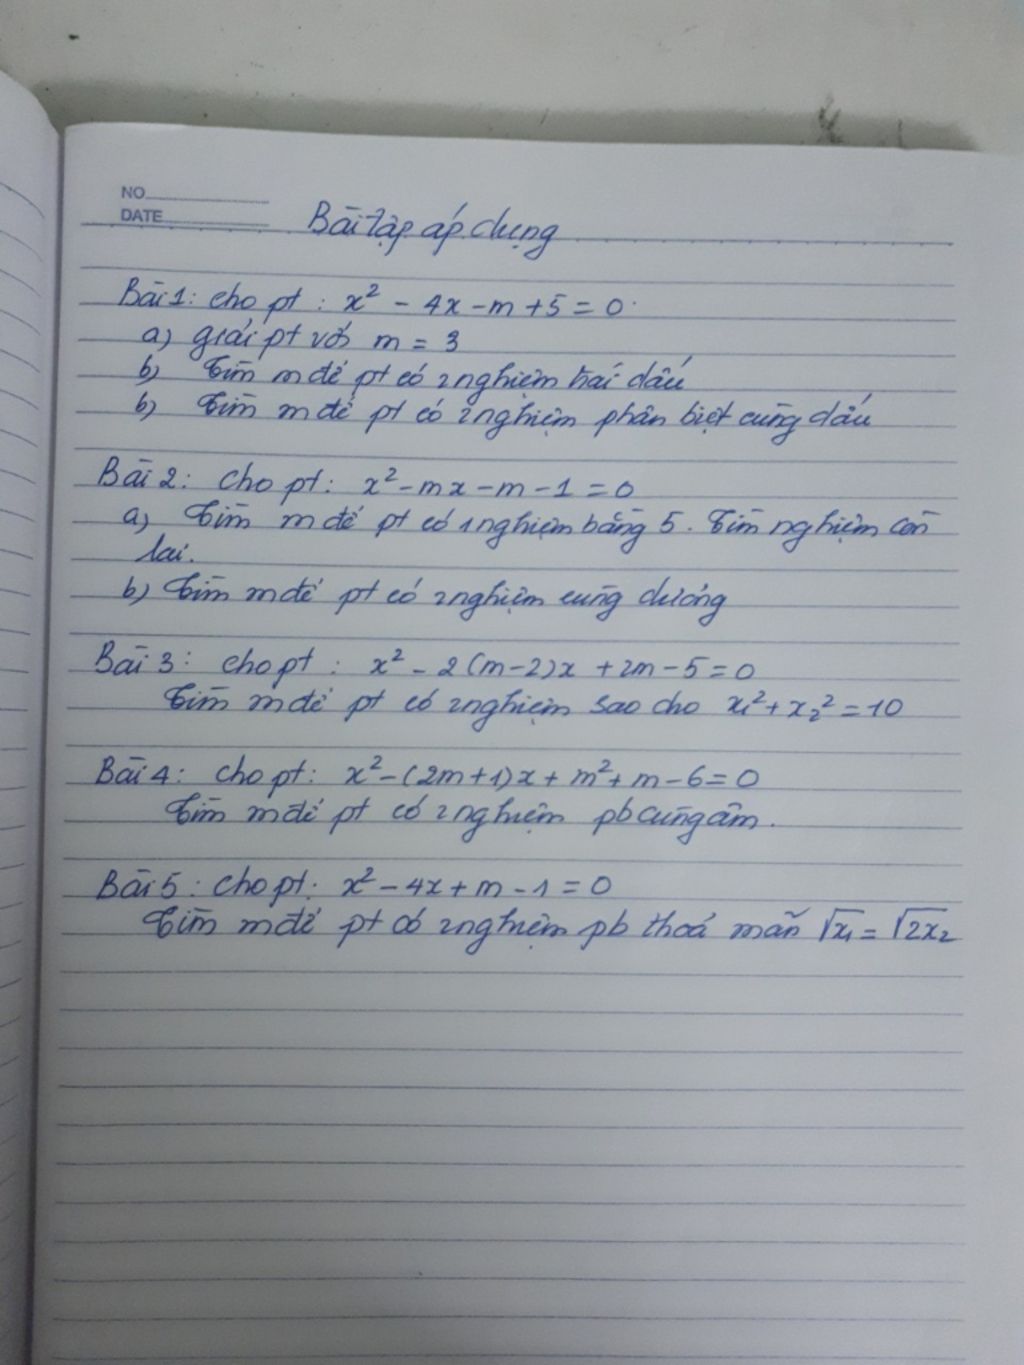 NO
DATE
Bài tập áp dụng
Bài 1: cho pt: x² - 4x - m + 5 = 0
a) giải pt với m = 3
b) Tìm m để pt có 2 nghiệm trái dấu
b) Tìm m để pt có 2 nghiệm phân biệt cùng dấu
Bài 2: Cho pt: x² - mx - m - 1 = 0
a) Tìm m để pt có 1 nghiệm bằng 5. Tìm nghiệm còn
lại.
b) Tìm m để pt có 2 nghiệm cùng dương
Bài 3: cho pt: x² - 2(m-2)x + 2m - 5 = 0
Tìm m để pt có 2 nghiệm sao cho x₁² + x₂² = 10
Bài 4: Cho pt: x² - (2m+1)x + m² + m - 6 = 0
Tìm m để pt có 2 nghiệm pb cùng âm.
Bài 5: Cho pt: x² - 4x + m - 1 = 0
Tìm m để pt có 2 nghiệm pb thoả mãn √x₁ = √2x₂